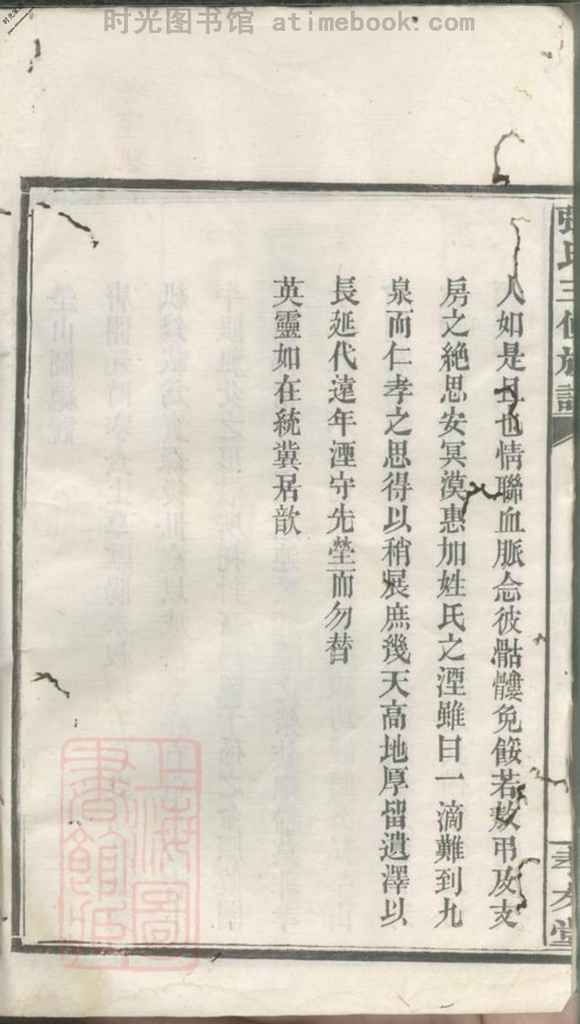 时光图书馆 atimebook.com
張氏三修族譜
孝友堂
人如是且也情聯血脈念彼骷髏免餒若敖弔及支
房之絶思安冥漠惠加姓氏之湮雖曰一滴難到九
泉而仁孝之思得以稍展庶幾天高地厚留遺澤以
長延代遠年湮守先塋而勿替
英靈如在統冀居歆
上海圖書館藏